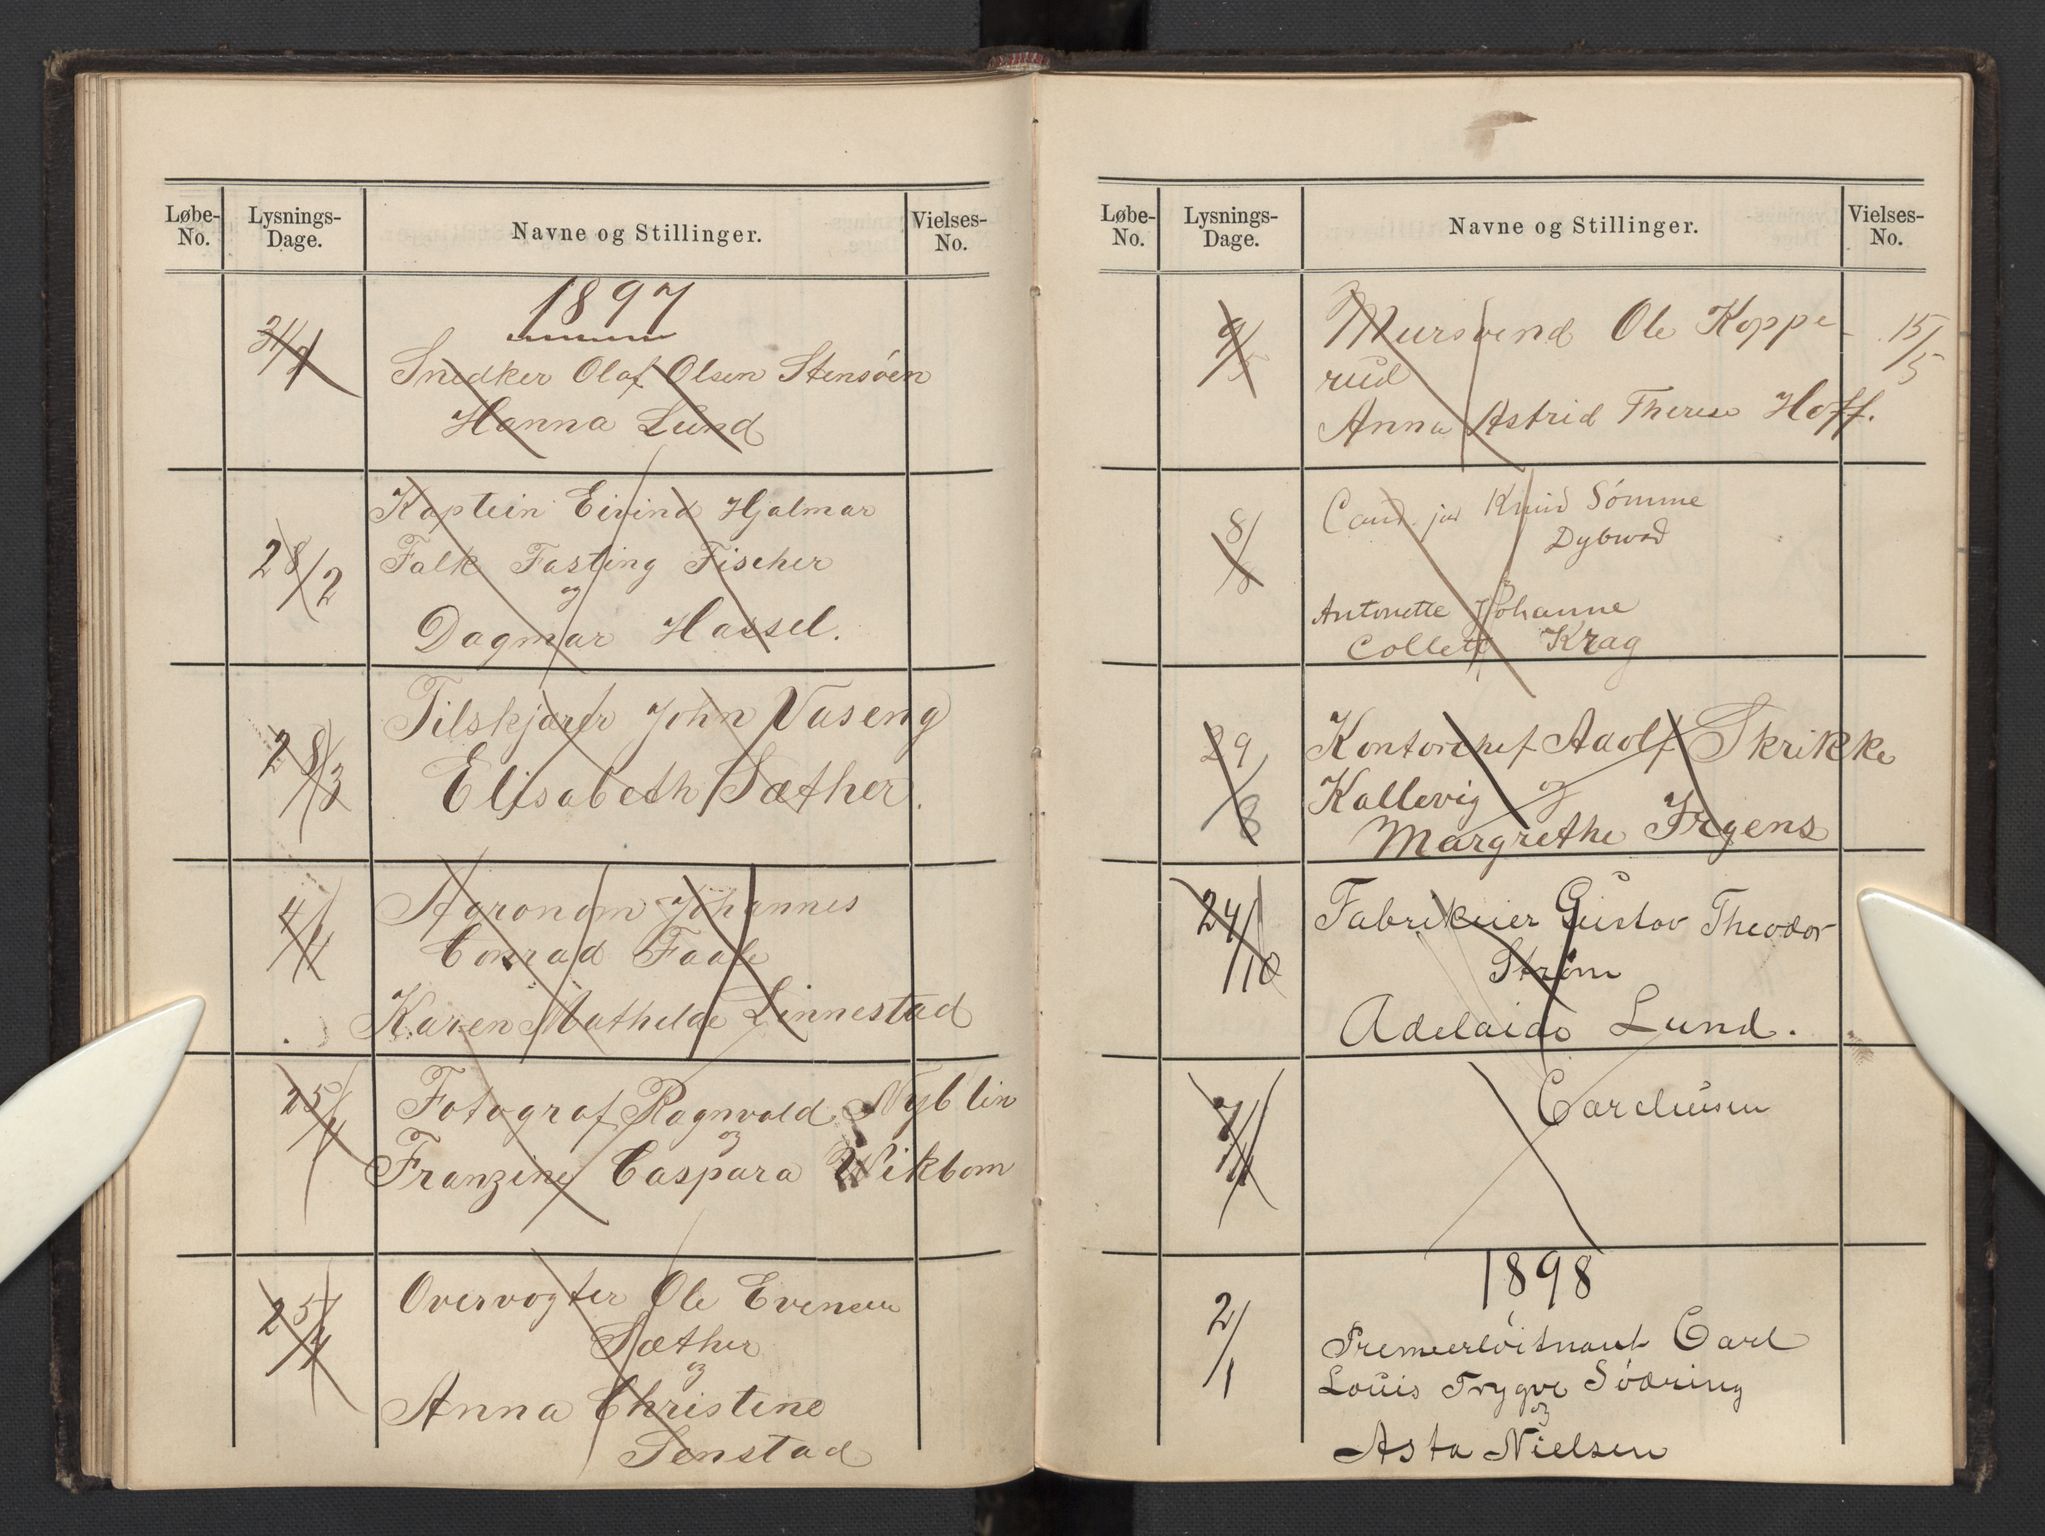 Løbe-
No.
Lysnings-
Dage.
Navne og Stillinger.
Vielses-
No.
1897
Snedker Olaf Olsen Stensöen
Hanna Lund
28/2
Kaptein Eivind Hjalmar
Falk Fasting Fischer
og
Dagmar Hassel.
28/3
Tilskjærer John Vaseng
Elisabeth Sæther.
4/4
Agronom Johannes
Conrad Faale
Karen Mathelde Linnestad
25/4
Fotograf Ragnvald Nyblin
og
Franzine Caspara Wikbom
25/4
Overvogter Ole Evensen
Sæther
og
Anna Christine
Senstad
Løbe-
No.
Lysnings-
Dage.
Navne og Stillinger.
Vielses-
No.
9/5
Mursvend Ole Koppe-
rud
15/5
Anna Astrid Therese Hoff.
8/8
Cand. jur Knud Sömme
Dybwad
og
Antonette Johanne
Collett Krag
29/8
Kontorchef Adolf Skrikke
Kallevig og
Margrethe Irgens
24/10
Fabrikeier Gustav Theodor
Strøm
Adelaide Lund.
7/11
1898
2/1
Premierlöitnant Carl
Louis Trygve Sværing
og
Asta Nielsen